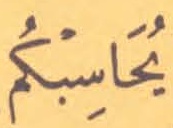 يُحَاسِبْكُم